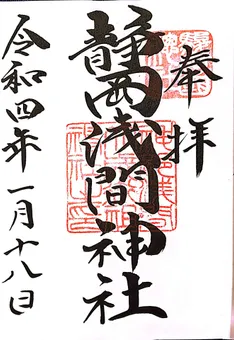 奉拝
静西浅間神社
令和四年一月十八日